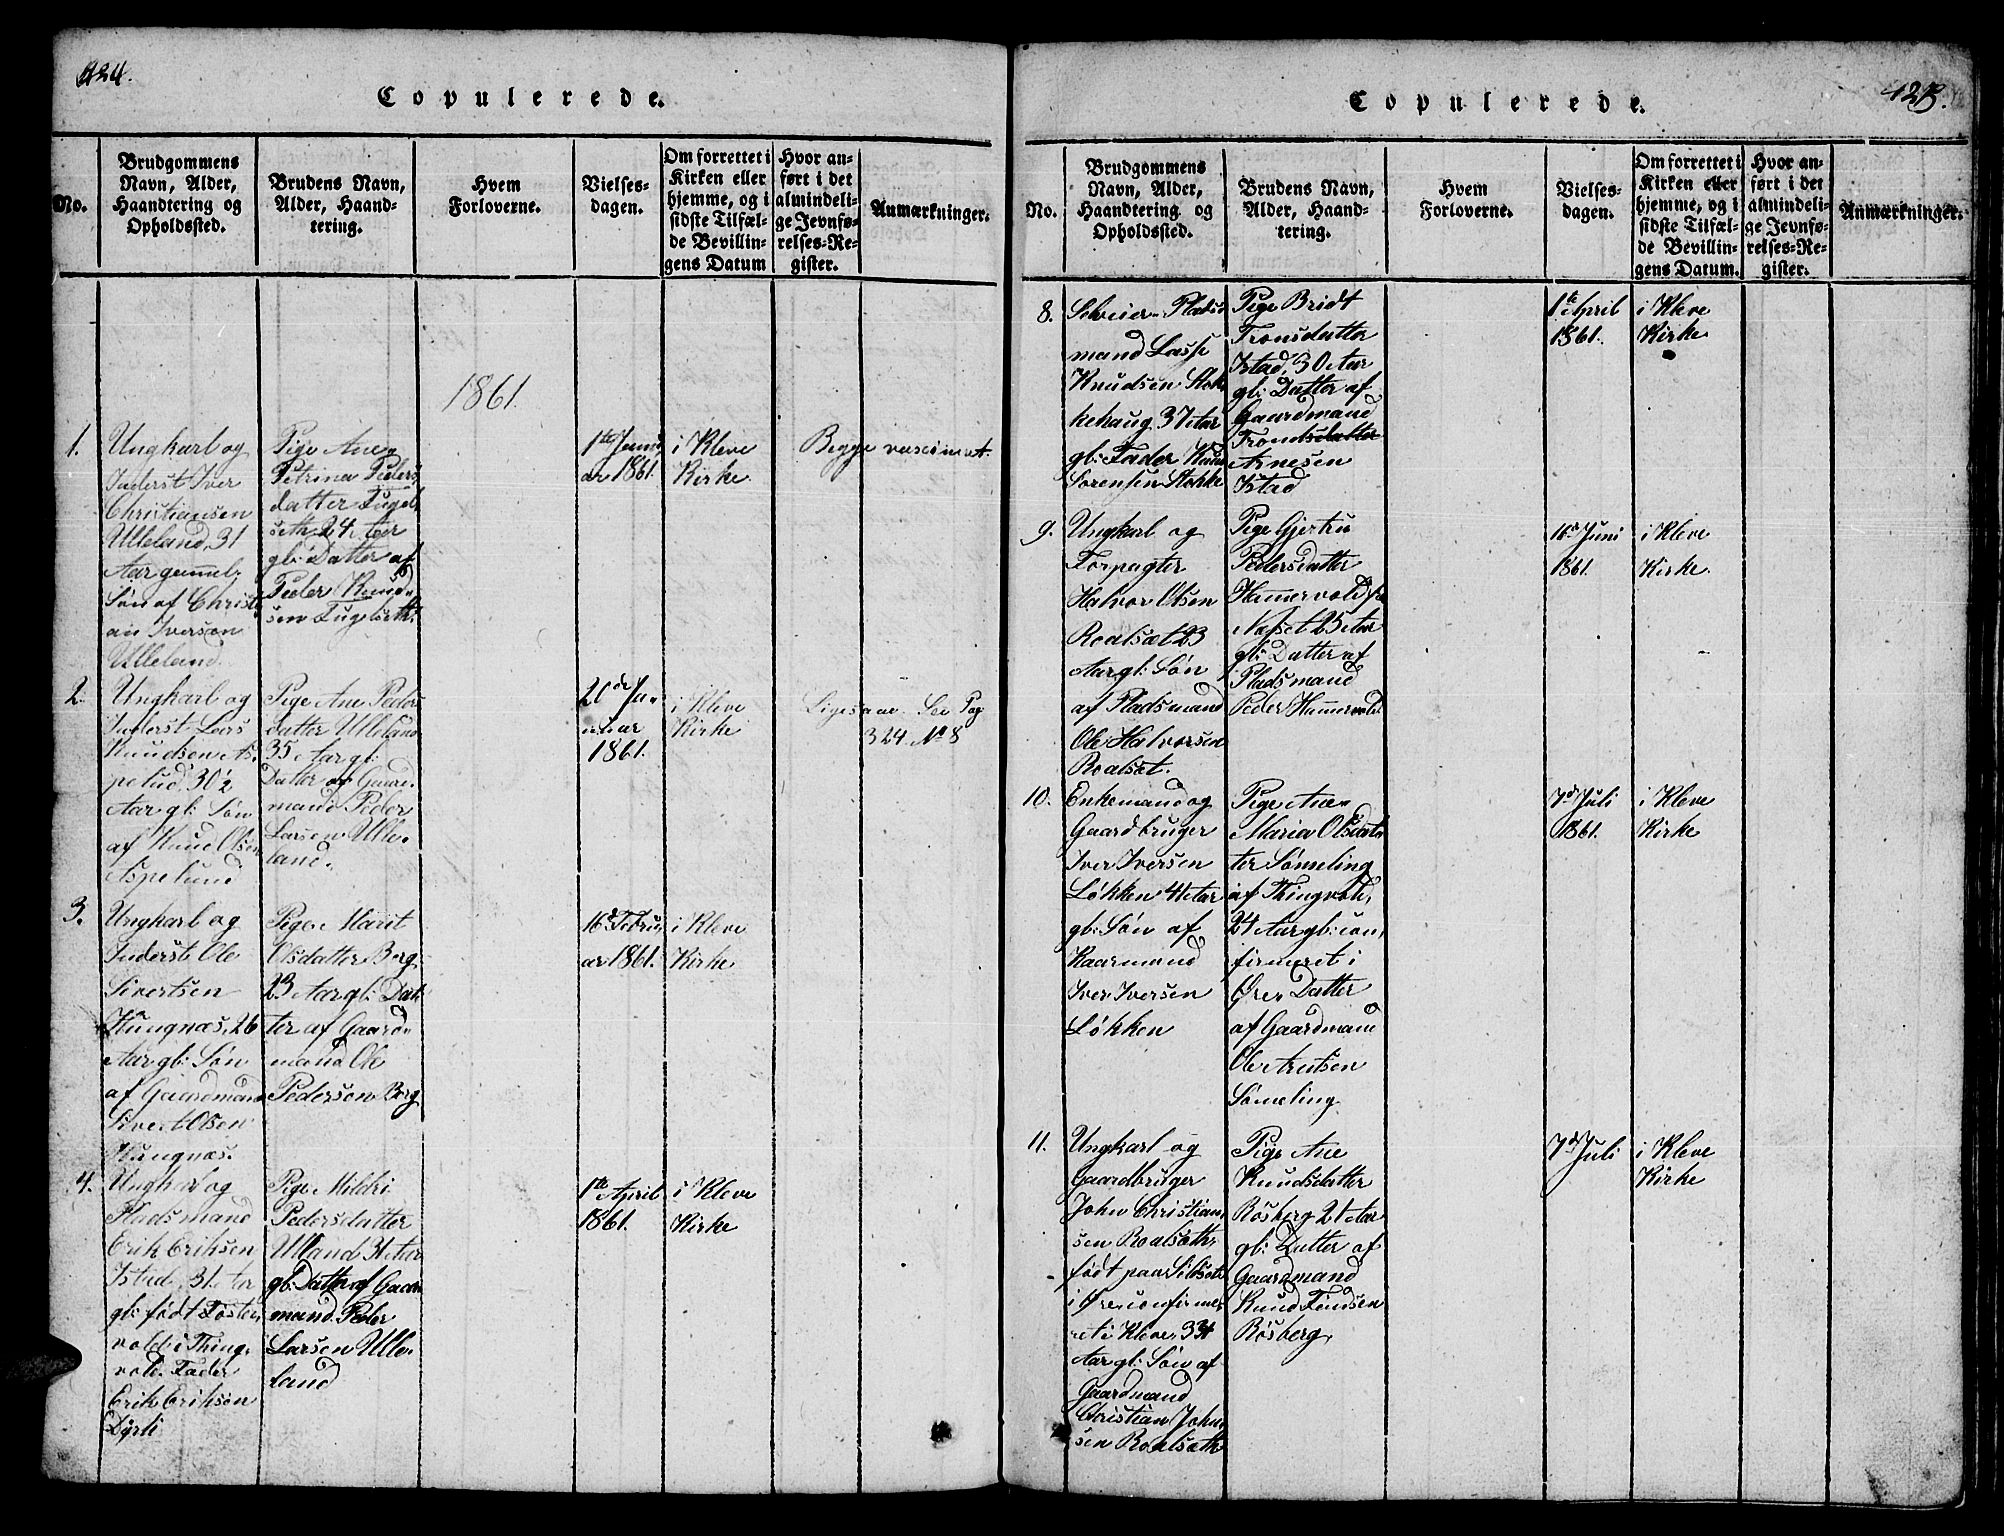 424.
Copulerede.
No.
Brudgommens
Navn, Alder,
Haandtering og
Opholdssted.
Brudens Navn,
Alder, Haand-
tering.
Hvem
Forloverne.
Vielses-
dagen.
Om forrettet i
Kirken eller
hjemme, og i
sidste Tilfæl-
de Bevillin-
gens Datum
Hvor an-
ført i det
almindeli-
ge Jevnfø-
relses-Re-
gister.
Anmærkninger.
1861.
1.
Ungkarl og
Inderst Iver
Christiansen
Ulleland, 31
Aar gammel,
Søn af Christi
an Iversen
Ulleland.
Pige Ane
Petrina Peders
datter Fugel
seth 24 Aar
gl: Datter af
Peder Knud-
sen Fugelseth.
1ste Janu
ar 1861.
i Kleve
Kirke
Begge vaccineret
2.
Ungkarl og
Inderst Lars
Knudsen As-
pelund, 30½
Aar gl: Søn
af Knud Olsen
Aspelund
Pige Ane Peders
datter Ulleland
35 Aar gl:
Datter af Gaard
mand Peder
Larsen Ulle-
land.
20de Ja-
nuar
1861.
i Kleve
Kirke
Ligesaa. See Pag
324 No 8
3.
Ungkarl og
Inderst Ole
Sivertsen
Kungnæs, 26
Aar gl: Søn
af Gaardmand
Sivert Olsen
Kungnæs.
Pige Marit
Olsdatter Berg
23 Aar gl: Dat
ter af Gaard-
mand Ole
Pedersen Berg
16d Febru
ar 1861.
i Kleve
Kirke
4.
Ungkarl og
Pladsmand
Erik Eriksen
Istad, 31 Aar
gl: født Fosten
vold i Thing-
vold. Fader
Erik Eriksen
Dyrli
Pige Mildri
Pedersdatter
Ulland 31 Aar
gl: Datter af Gaar
mand Peder
Larsen Ulle-
land
1ste April
1861.
i Kleve
Kirke
425.
Copulerede.
No.
Brudgommens
Navn, Alder,
Haandtering og
Opholdssted.
Brudens Navn,
Alder, Haand-
tering.
Hvem
Forloverne.
Vielses-
dagen.
Om forrettet i
Kirken eller
hjemme, og i
sidste Tilfæl-
de Bevillin-
gens Datum.
Hvor an-
ført i det
almindeli-
ge Jevnfø-
relses-Re-
gister.
Anmærkninger.
8.
Pladsd
mand Lasse
Knudsen Stok
kehaug 37 Aar
gl: Fader Knud
Sørensen Stokke
Pige Bridt
Tronsdatter
Istad, 30 Aar
gl: Datter af
Gaardmand
Trondsdatter
Arnesen
Istad
1ste April
1861.
i Kleve
Kirke
9.
Ungkarl og
Forpagter
Halvor Olsen
Roalsæt 23
Aar gl: Søn
af Pladsmand
Ole Halvorsen
Roalset.
Pige Gjertru
Pedersdatter
Hammervold fra
Næsset 25 Aar
gl: Datter af
Pladsmand
Peder Hammervold
16d Juni
1861.
i Kleve
Kirke.
10.
Enkemand og
Gaardbruger
Iver Iversen
Løkken 41 Aar
gl: Søn af
Kaarmand
Iver Iversen
Løkken
Pige Ane
Maria Olsdat
ter Sømeling
af Thingvold,
24 Aar gl: con-
firmeret i
Øre, Datter
af Gaardmand
Ole Arntsen
Sømeling
7d Juli
1861.
i Kleve
Kirke
11.
Ungkarl og
Gaardbruger
John Christian-
sen Roalsæth,
født paa Sildset
i Øre, confirme-
ret i Kleve, 33
Aar gl: Søn af
Gaardmand
Christian John
sen Roalsæth
Pige Ane
Knudsdatter
Røsberg 21 Aar
gl: Datter af
Gaardmand
Knud Findsen
Røsberg
7d Juli
i Kleve
Kirke